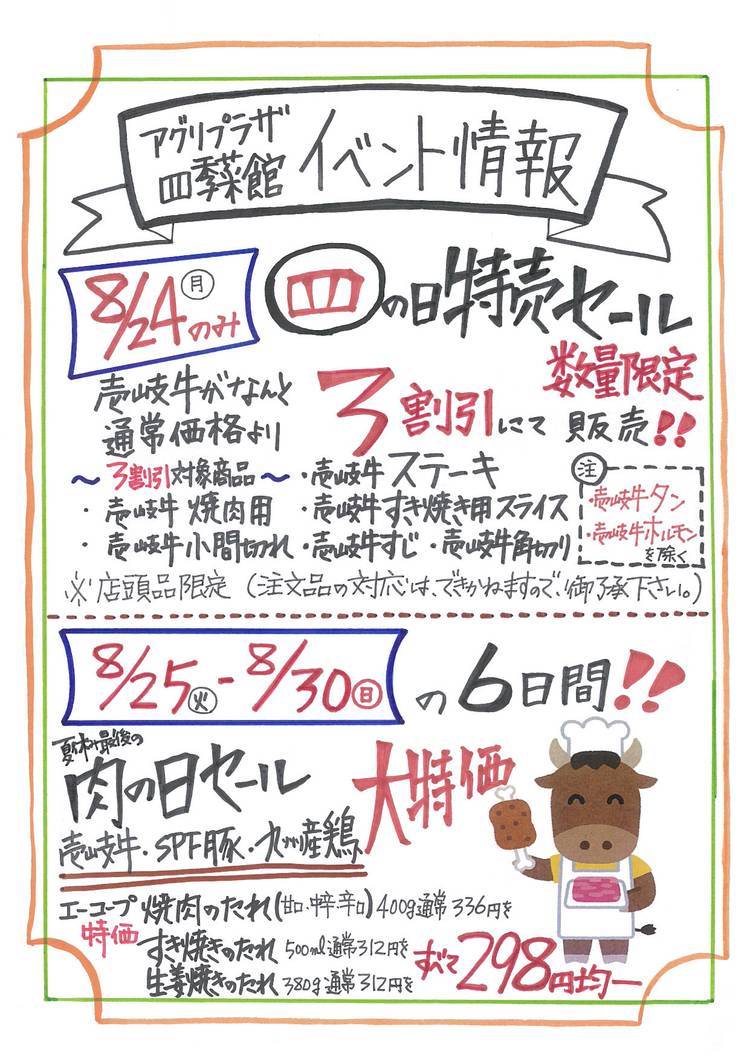 アグリプラザ
四季菜館 イベント情報
8/24㊊のみ 四の日特売セール
数量限定
壱岐牛がなんと
通常価格より 3割引にて 販売!!
～3割引対象商品～ ・壱岐牛 ステーキ
・壱岐牛 焼肉用 ・壱岐牛すき焼き用スライス
・壱岐牛小間切れ ・壱岐牛すじ ・壱岐牛角切り
注
・壱岐牛タン
・壱岐牛ホルモン
を除く
※店頭品限定 (注文品の対応は、できかねますので、御了承下さい。)
8/25㊋-8/30㊐の6日間!!
夏休み最後の
肉の日セール 大特価
壱岐牛・SPF豚・九州産鶏
エーコープ 焼肉のたれ(甘口・中辛・辛口) 400g通常336円を
特価 すき焼きのたれ 500ml通常312円を
生姜焼きのたれ 380g通常312円を
すべて298円均一